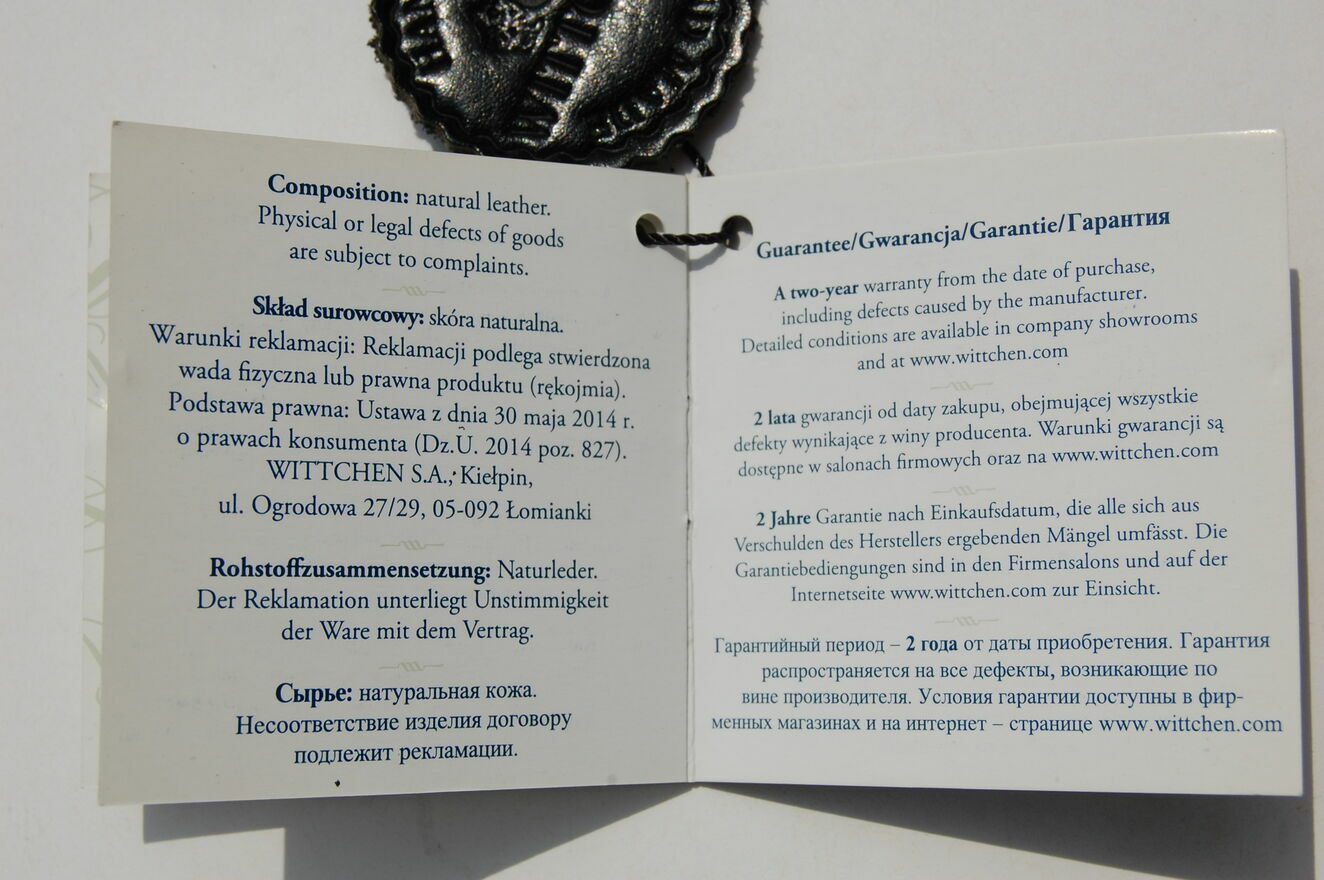 Composition: natural leather.
Physical or legal defects of goods
are subject to complaints.
Skład surowcowy: skóra naturalna.
Warunki reklamacji: Reklamacji podlega stwierdzona
wada fizyczna lub prawna produktu (rękojmia).
Podstawa prawna: Ustawa z dnia 30 maja 2014 r.
o prawach konsumenta (Dz.U. 2014 poz. 827).
WITTCHEN S.A., Kiełpin,
ul. Ogrodowa 27/29, 05-092 Łomianki
Rohstoffzusammensetzung: Naturleder.
Der Reklamation unterliegt Unstimmigkeit
der Ware mit dem Vertrag.
Сырье: натуральная кожа.
Несоответствие изделия договору
подлежит рекламации.
Guarantee/Gwarancja/Garantie/Гарантия
A two-year warranty from the date of purchase,
including defects caused by the manufacturer.
Detailed conditions are available in company showrooms
and at www.wittchen.com
2 lata gwarancji od daty zakupu, obejmującej wszystkie
defekty wynikające z winy producenta. Warunki gwarancji są
dostępne w salonach firmowych oraz na www.wittchen.com
2 Jahre Garantie nach Einkaufsdatum, die alle sich aus
Verschulden des Herstellers ergebenden Mängel umfässt. Die
Garantiebediengungen sind in den Firmensalons und auf der
Internetseite www.wittchen.com zur Einsicht.
Гарантийный период – 2 года от даты приобретения. Гарантия
распространяется на все дефекты, возникающие по
вине производителя. Условия гарантии доступны в фир-
менных магазинах и на интернет – странице www.wittchen.com